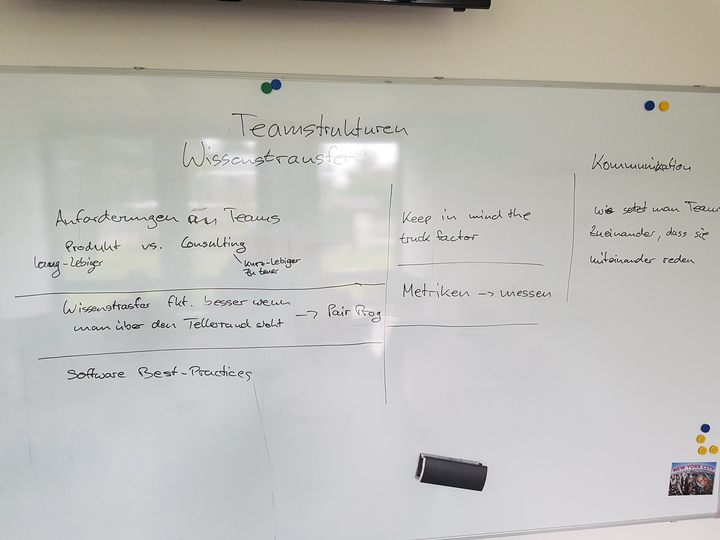 Teamstrukturen
Wissenstransfer
Anforderungen an Teams
Produkt vs. Consulting
Lang-Lebiger
Kurz-Lebiger
zu teuer
Wissenstrasfer fkt. besser wenn
man über den Tellerrand sieht → Pair Prog
Software Best-Practices
Keep in mind the
truck factor
Metriken → messen
Kommunikation
wie setzt man Team
Zueinander, dass sie
miteinander reden
NEW YORK CITY